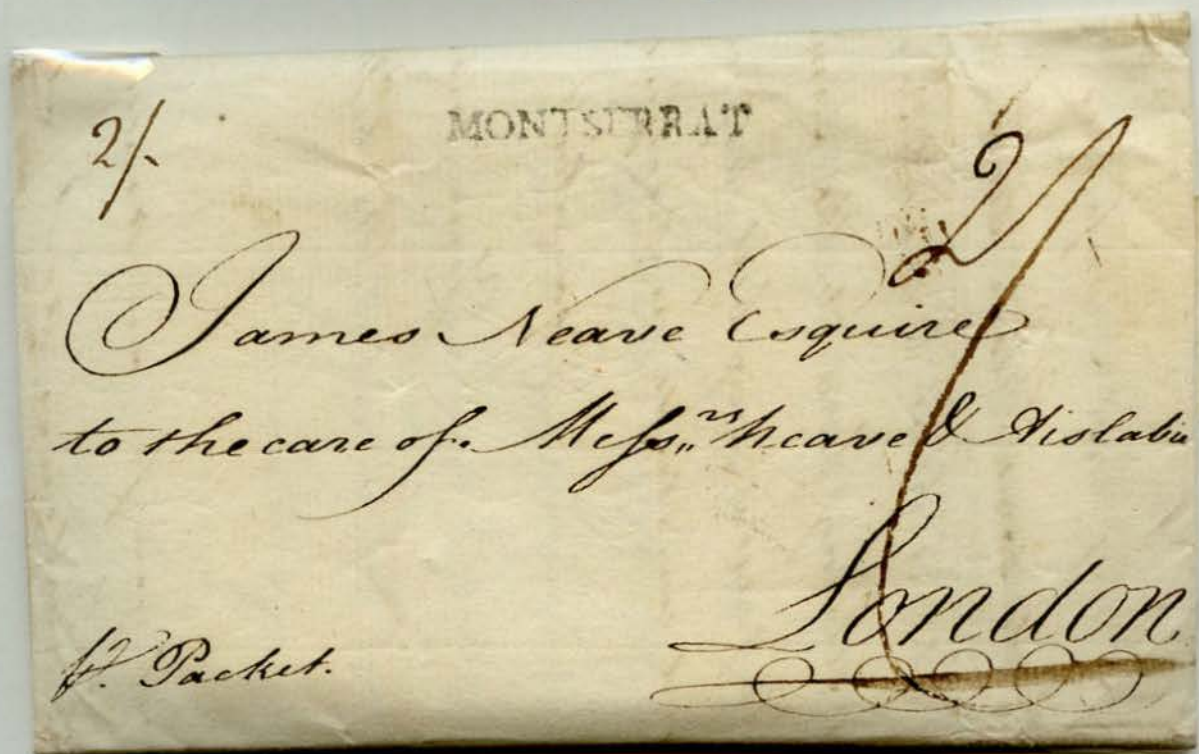 MONTSERRAT
2/-
2/
James Neave Esquire
to the care of Messrs Neave & Aislabie
London
pr. Packet.